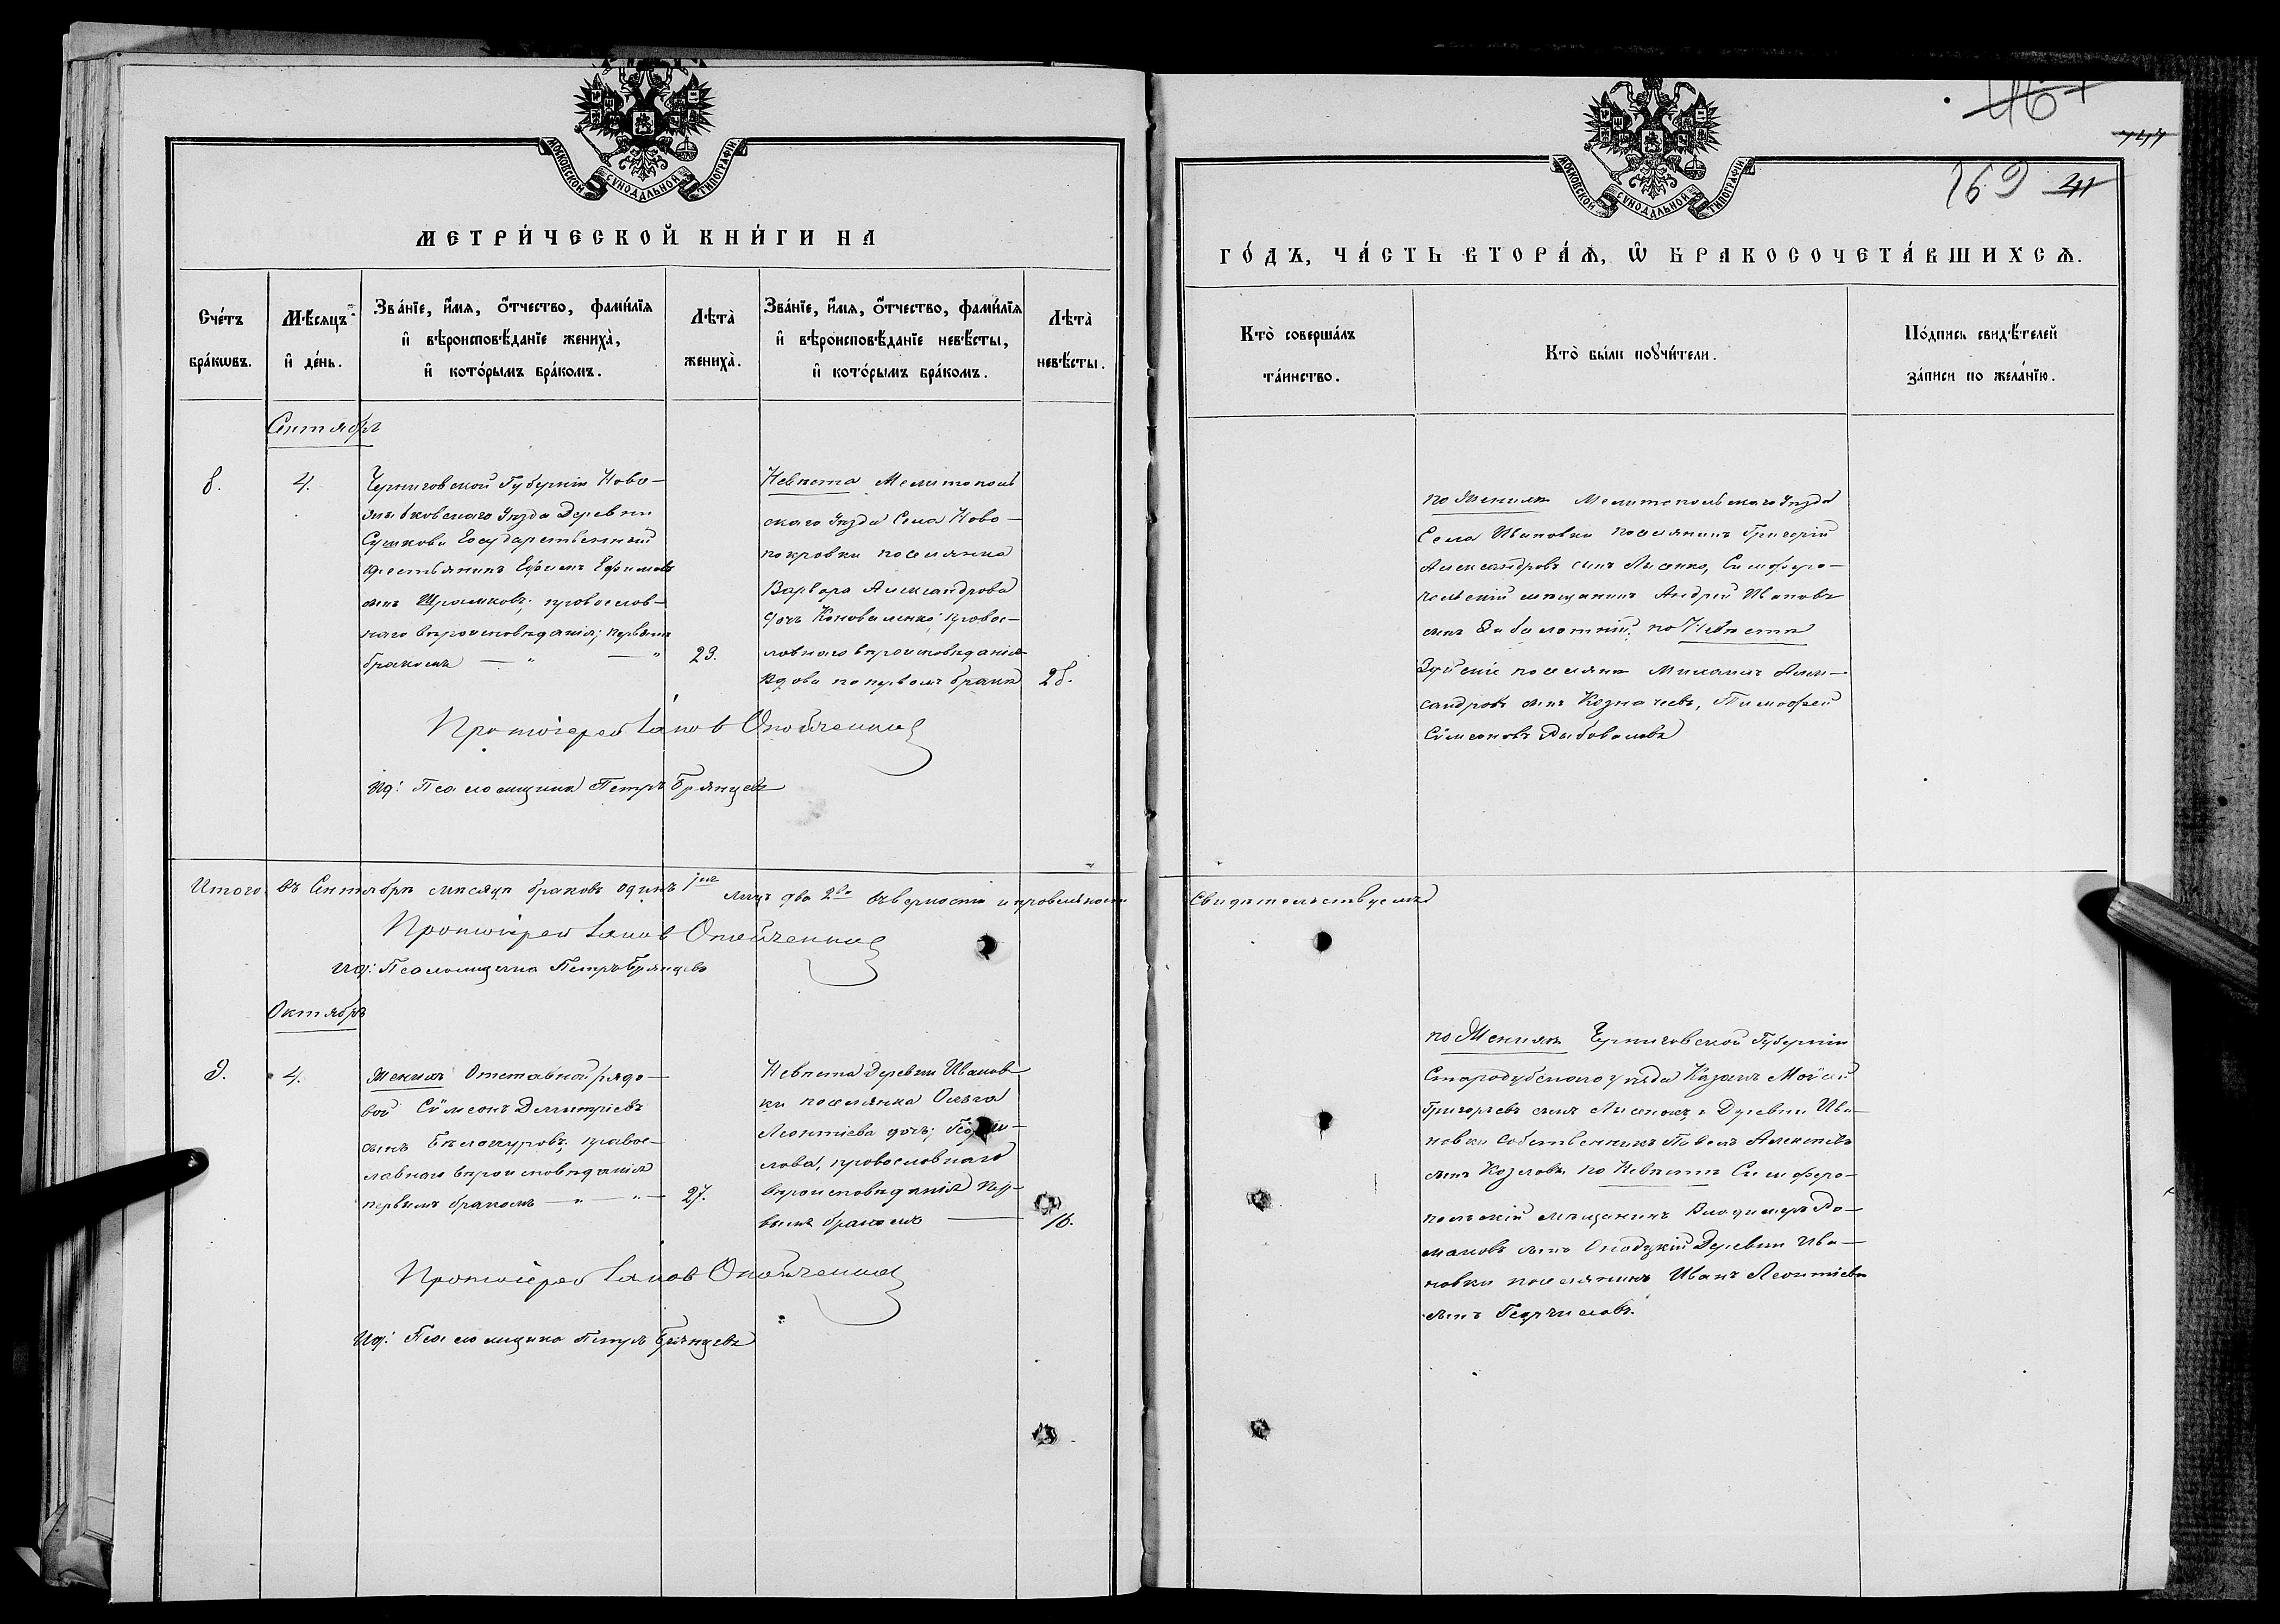 МОСКОВСКОЙ СУНОДАЛЬНОЙ ТИПОГРАФІИ.
МЕТРИ́ЧЕСКОЙ КНИ́ГИ НА
Сче́тъ бра́кωвъ.
Мѣ́сяцъ и҆ де́нь.
Зва́нїе, и҆́мя, ѻ҆́тчество, фами́лїя
и҆ вѣроисповѣ́данїе жениха̀,
и҆ кото́рымъ бра́комъ.
Лѣта̀ жениха̀.
Зва́нїе, и҆́мя, ѻ҆́тчество, фами́лїя
и҆ вѣроисповѣ́данїе невѣ́сты,
и҆ кото́рымъ бра́комъ.
Лѣта̀ невѣ́сты.
Сентябрь
8.
4.
Черниговской Губерніи Ново-
зыбковскаго Уѣзда Деревни
Государственный
крестьянинъ Ефимъ Ефимовъ
сынъ православ-
наго вѣроисповѣданія; первымъ
бракомъ — " — "
23.
Невѣста Мелитополь
скаго Уѣзда Села Ново-
покровки поселянка
Варвара Александрова
дочь Коноваленко, правос-
лавнаго вѣроисповѣданія
вдова по первомъ бракѣ
28.
Протоіерей Іаков
Ид: Псаломщика Петръ Брянцевъ
Итого въ Сентябрѣ мѣсяцѣ браковъ одинъ 1
лицъ два 2 въ вѣрности и правильности
Протоіерей Іаков
Ид: Псаломщика Петръ Брянцевъ
Октябрь
9.
4.
Женихъ Отставной рядо-
вой Сѵмеонъ Димитріевъ
сынъ Бѣлокуровъ, правос-
лавнаго вѣроисповѣданія
первымъ бракомъ — " — " —
27.
Невѣста Деревни Иванов
ки поселянка Ольга
Леонтіева дочь;
лова, православнаго
вѣроисповѣданія пер-
вымъ бракомъ —
16.
Протоіерей Іаков
Ид: Псаломщика Петръ Брянцевъ
МОСКОВСКОЙ СУНОДАЛЬНОЙ ТИПОГРАФІИ.
169
ГО́ДЪ, ЧА́СТЬ ВТОРА́Я, Ѽ БРАКОСОЧЕТА́ВШИХСЯ.
Кто̀ соверша́лъ
та́инство.
Кто̀ бы́ли пору́чители.
По́дпись свидѣ́телей
за́писи по жела́нїю.
по Женихѣ Мелитопольскаго Уѣзда
Села Ивановки поселянинъ Григорій
Александровъ сынъ Лысенко, Симферо-
польскій мѣщанинъ Андрей Ивановъ
сынъ Заболотній; по Невѣстѣ
Зуйскіе поселяне Михаилъ Алек-
сандровъ сынъ Казначеевъ, Тимофей
Сѵмеоновъ Рыбоваловъ
Свидѣтельствуемъ
по Женихѣ Черниговской Губерніи
Стародубскаго уѣзда Казакъ Моѵсей
Григорьевъ сынъ Деревни Ива-
новки собственникъ Павелъ Алексѣевъ
сынъ Козловъ по Невѣстѣ Симферо-
польскій мѣщанинъ Владимеръ Ро-
мановъ сынъ Деревни Ива-
новки поселянинъ Иванъ Леонтіевъ
сынъ